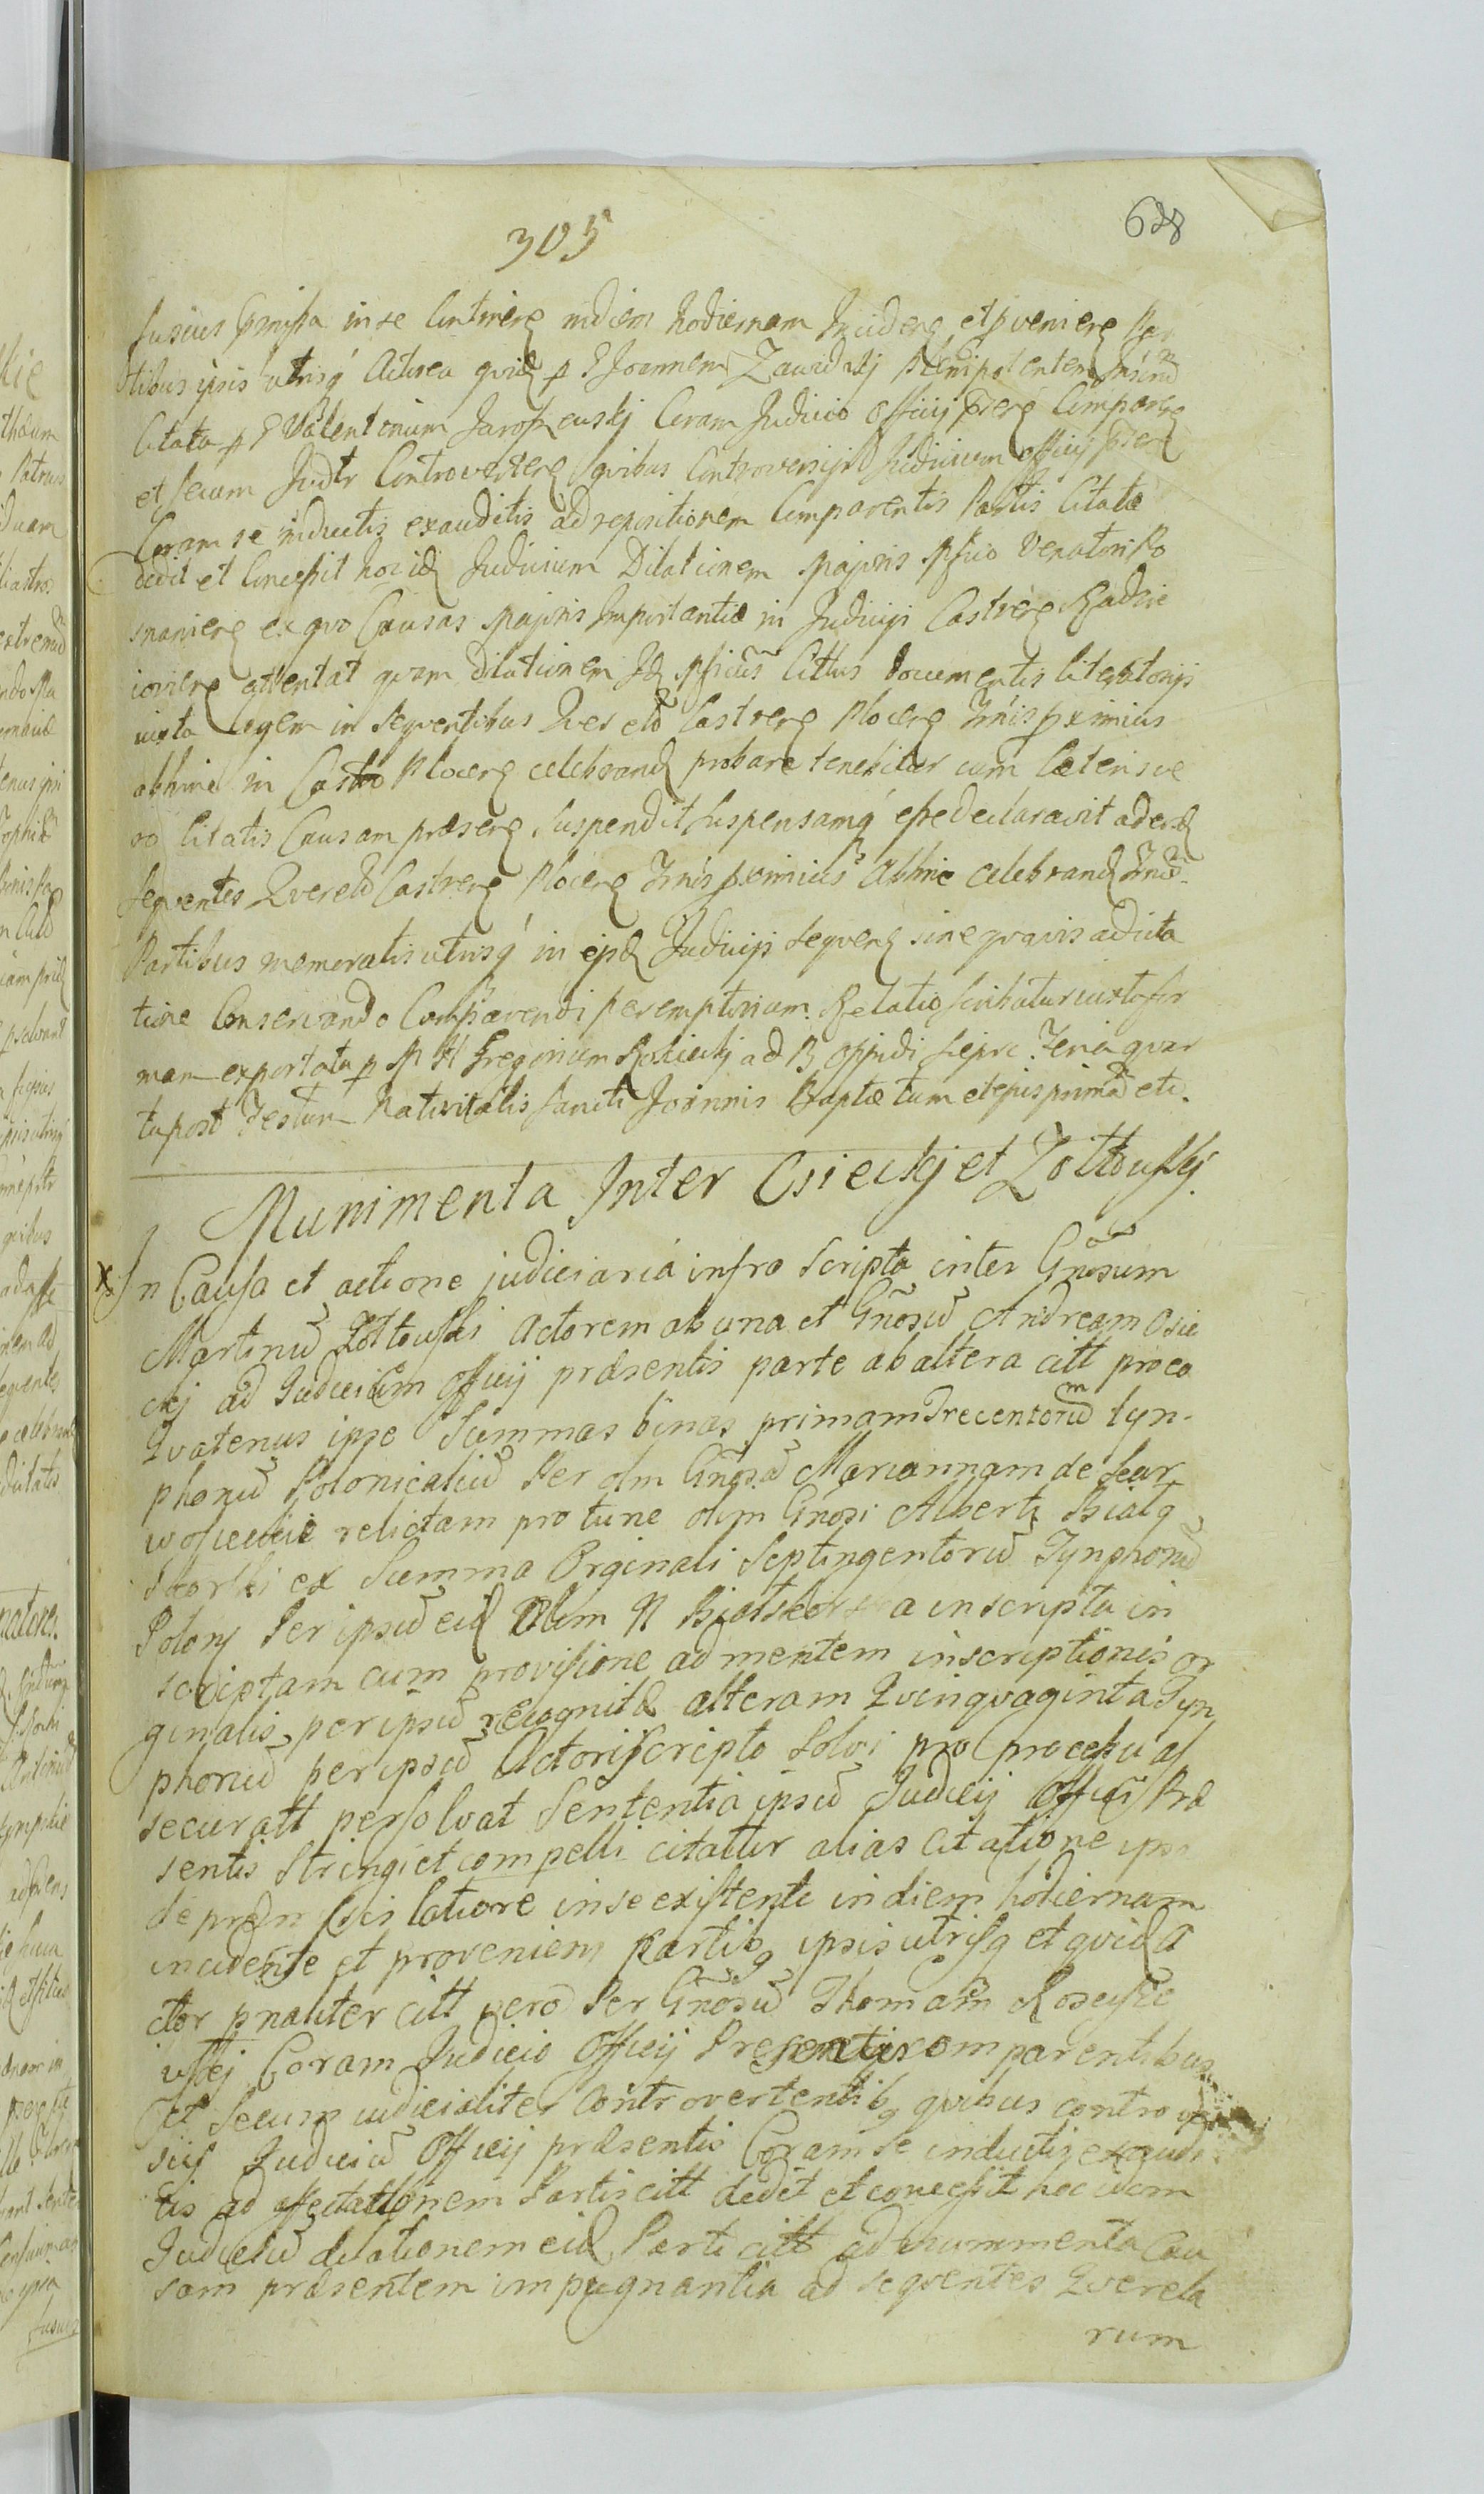 305
628
fusius praemissa in se Continen in diem hodiernam Inciden et provenien Par
tibus ipsis utrisq Actorea quid p G Joannem Zawidzkj Plenipotentem
Citata p G Valentinum Jaroszewskj Coram Judicio Officij Comparen
et secum Judtr Controverten quibus Controversijs Judicium officij
Coram se inductis exauditis ad repositionem Comparentis Partis Citatae
dedit et Concessit hoc id Judicium Dilationem Majoris Venatori Po
snanien ex quo Causas Majoris Importantiae in Judicijs Castren Radzie
iovien attentat quam dilationem Id Cittus documentis literatorijs
iuxta legem in sequentibus Querelis Castren Plocen proximius
abhinc in Castro Plocen celebrand probare tenebitur cum Caeterisve
ro Citatis Causam praesen Suspendit suspensamq esse declaravit ad
sequentes Querelas Castren Plocen proximius Abhinc Celebrand
Partibus memoratis utrisq in ejsd Judicijs sequen sine quavis adcita
tione Conservando Comparendi peremptorium. Relatio scribatur iuxta for
mam exportata p M H Gregorium Rokickj ad B Oppidi Sierpc. Feria quar
ta post Festum Nativitatis Sancti Joannis Baptae tum et ejus prima etc.
Munimenta Inter Osieckj et Zołtowskj
In Causa et actione judiciaria infra scripta inter Gnosum
Martinu Zołtowski Actorem ab una et Gnosu Andream Osie
ckj ad Judicium Officij praesentis parte ab altera citt pro eo
Quatenus ipse Summas binas primam Trecentorum tyn-
phonu Polonicaliu Per olm Gnosa Mariannam de
relictam pro tunc olim Gnosi Alberti Białg
skorski ex Summa Orginali Septingentoru Tynphonu
Polon Per ipsu eid Olim N a inscripta in
scriptam cum provisione ad mentem inscriptionis or
ginalis per ipsu recognita alteram Quinquaginta Tyn
phonu per ipsu Actori scripto Solvi pro processu as
securatt persolvat Sententia ipsu Judicij Officij Prae
sentis Stringi et compelli citattur alias citatione ipsa
de latiore in se existente in diem hodiernam
incidente et provenien Partibq ipsis utrisq et quid A
ctor pnaliter citt vero Per Gnosu Thomam Rosciszе
wskj Coram Judicio Officij Presentis comparentibus
et Secum iudicialiter Controvertentibq quibus controver
sijs Judiciu Officij praesentis Coram se inductis exaudi
tis ad affectationem Partis citt dedit et concessit hoc idem
Judiciu dilationem eid Parti citt ad munimenta Cau
sam praesentem impugnantia ad sequentes Querela
rum